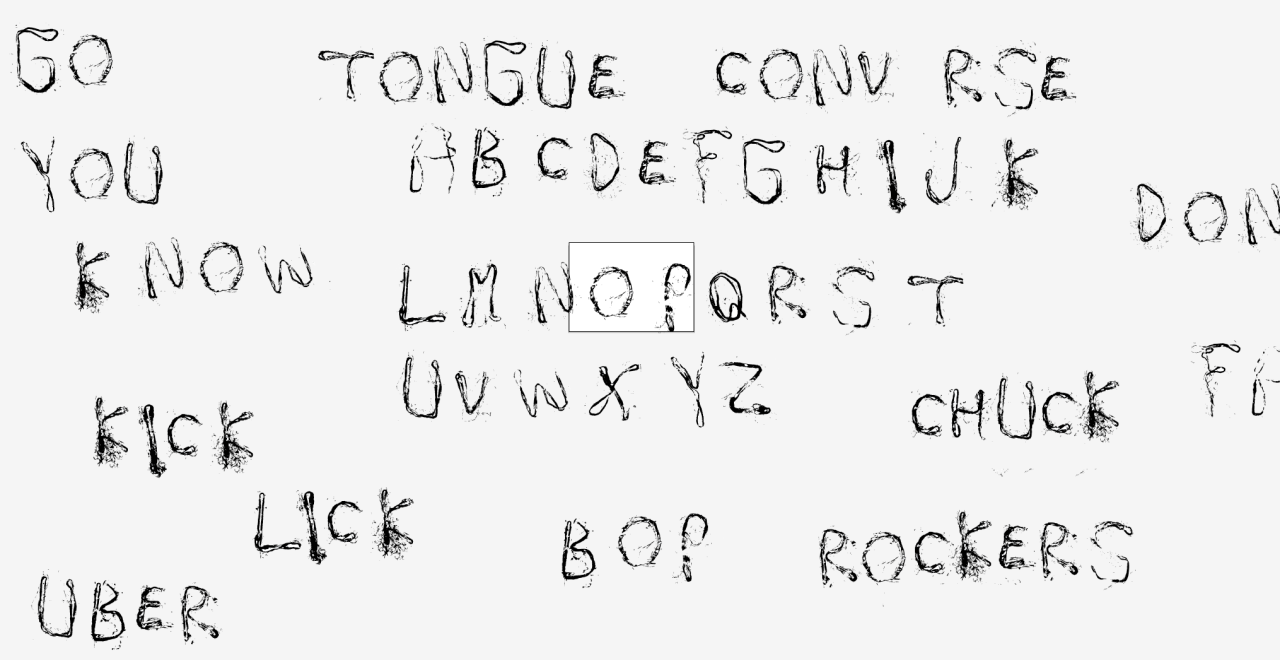 GO
TONGUE CONV RSE
YOU
ABCDEFGHIJK
DON
KNOW
LMNOPQRST
UVWXYZ
CHUCK
KICK
LICK
BOP
ROCKERS
UBER